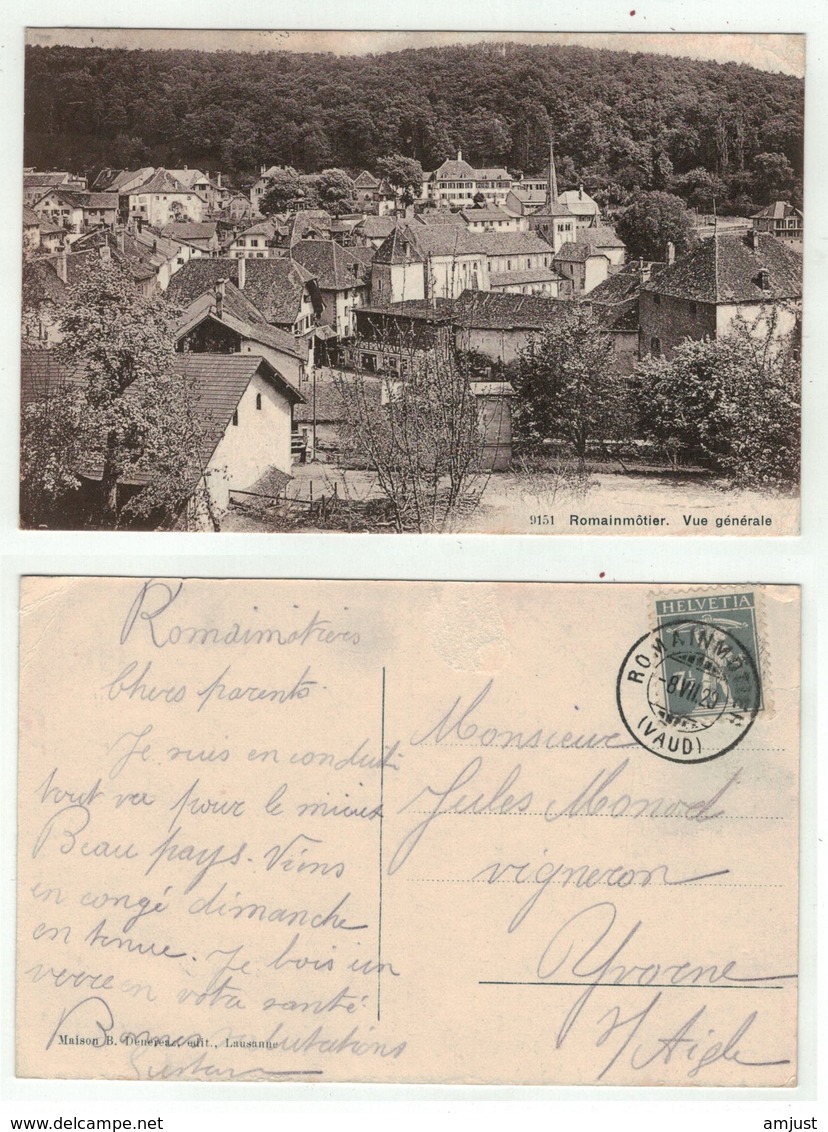 9151 Romainmôtier. Vue générale
Romaimôtiers
Chers parents.
Je suis en conduit
tout va pour le mieux
Beau pays. Viens
en congé dimanche
en tenue. Je bois un
verre en votre santé
Bonnes salutations
Gustave
Maison B. Dénéréaz, édit., Lausanne
HELVETIA
ROMAINMÔTIER
-8 VII.
(VAUD)
Monsieur
Jules Monod
vigneron
Yvorne
s/ Aigle
amjust